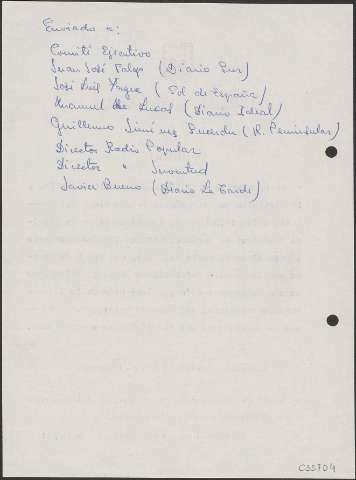 Enviado a:
Comité Ejecutivo
Juan José (Diario Sur)
José Luis Yague (Sol de España)
Manuel de Lucas (Diario Ideal)
Guillermo Smerdou (R. Peninsular)
Director Radio Popular
Director " Juventud
Javier Bueno (Diario La Tarde)
CSS704